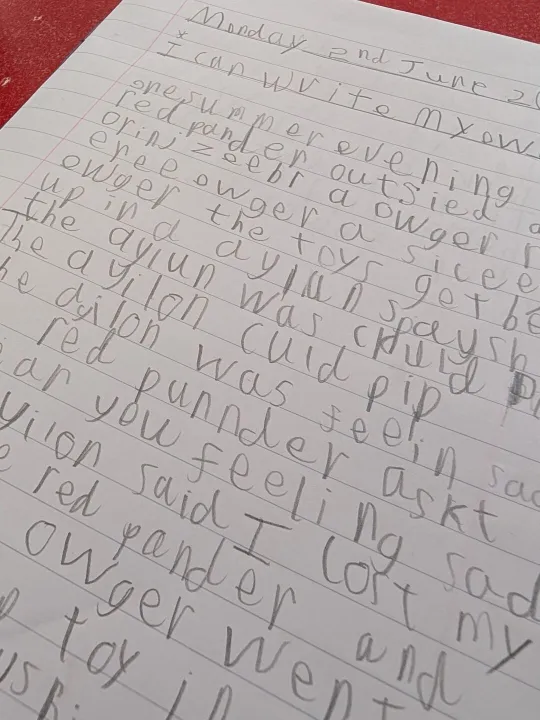 Monday 2nd June 2
I can write my ow
one summer evening
red pander outsied
orinj zeebr a owger
eree owger a sicee
owger the toys get be
up in a ayjan spaysh
the ayiun was calld
The ayilon culd pip
he ailon was feelin sad
red punnder askt
ar you feeling sad
yilon said I lost my
e red pander and
owger went
toy in